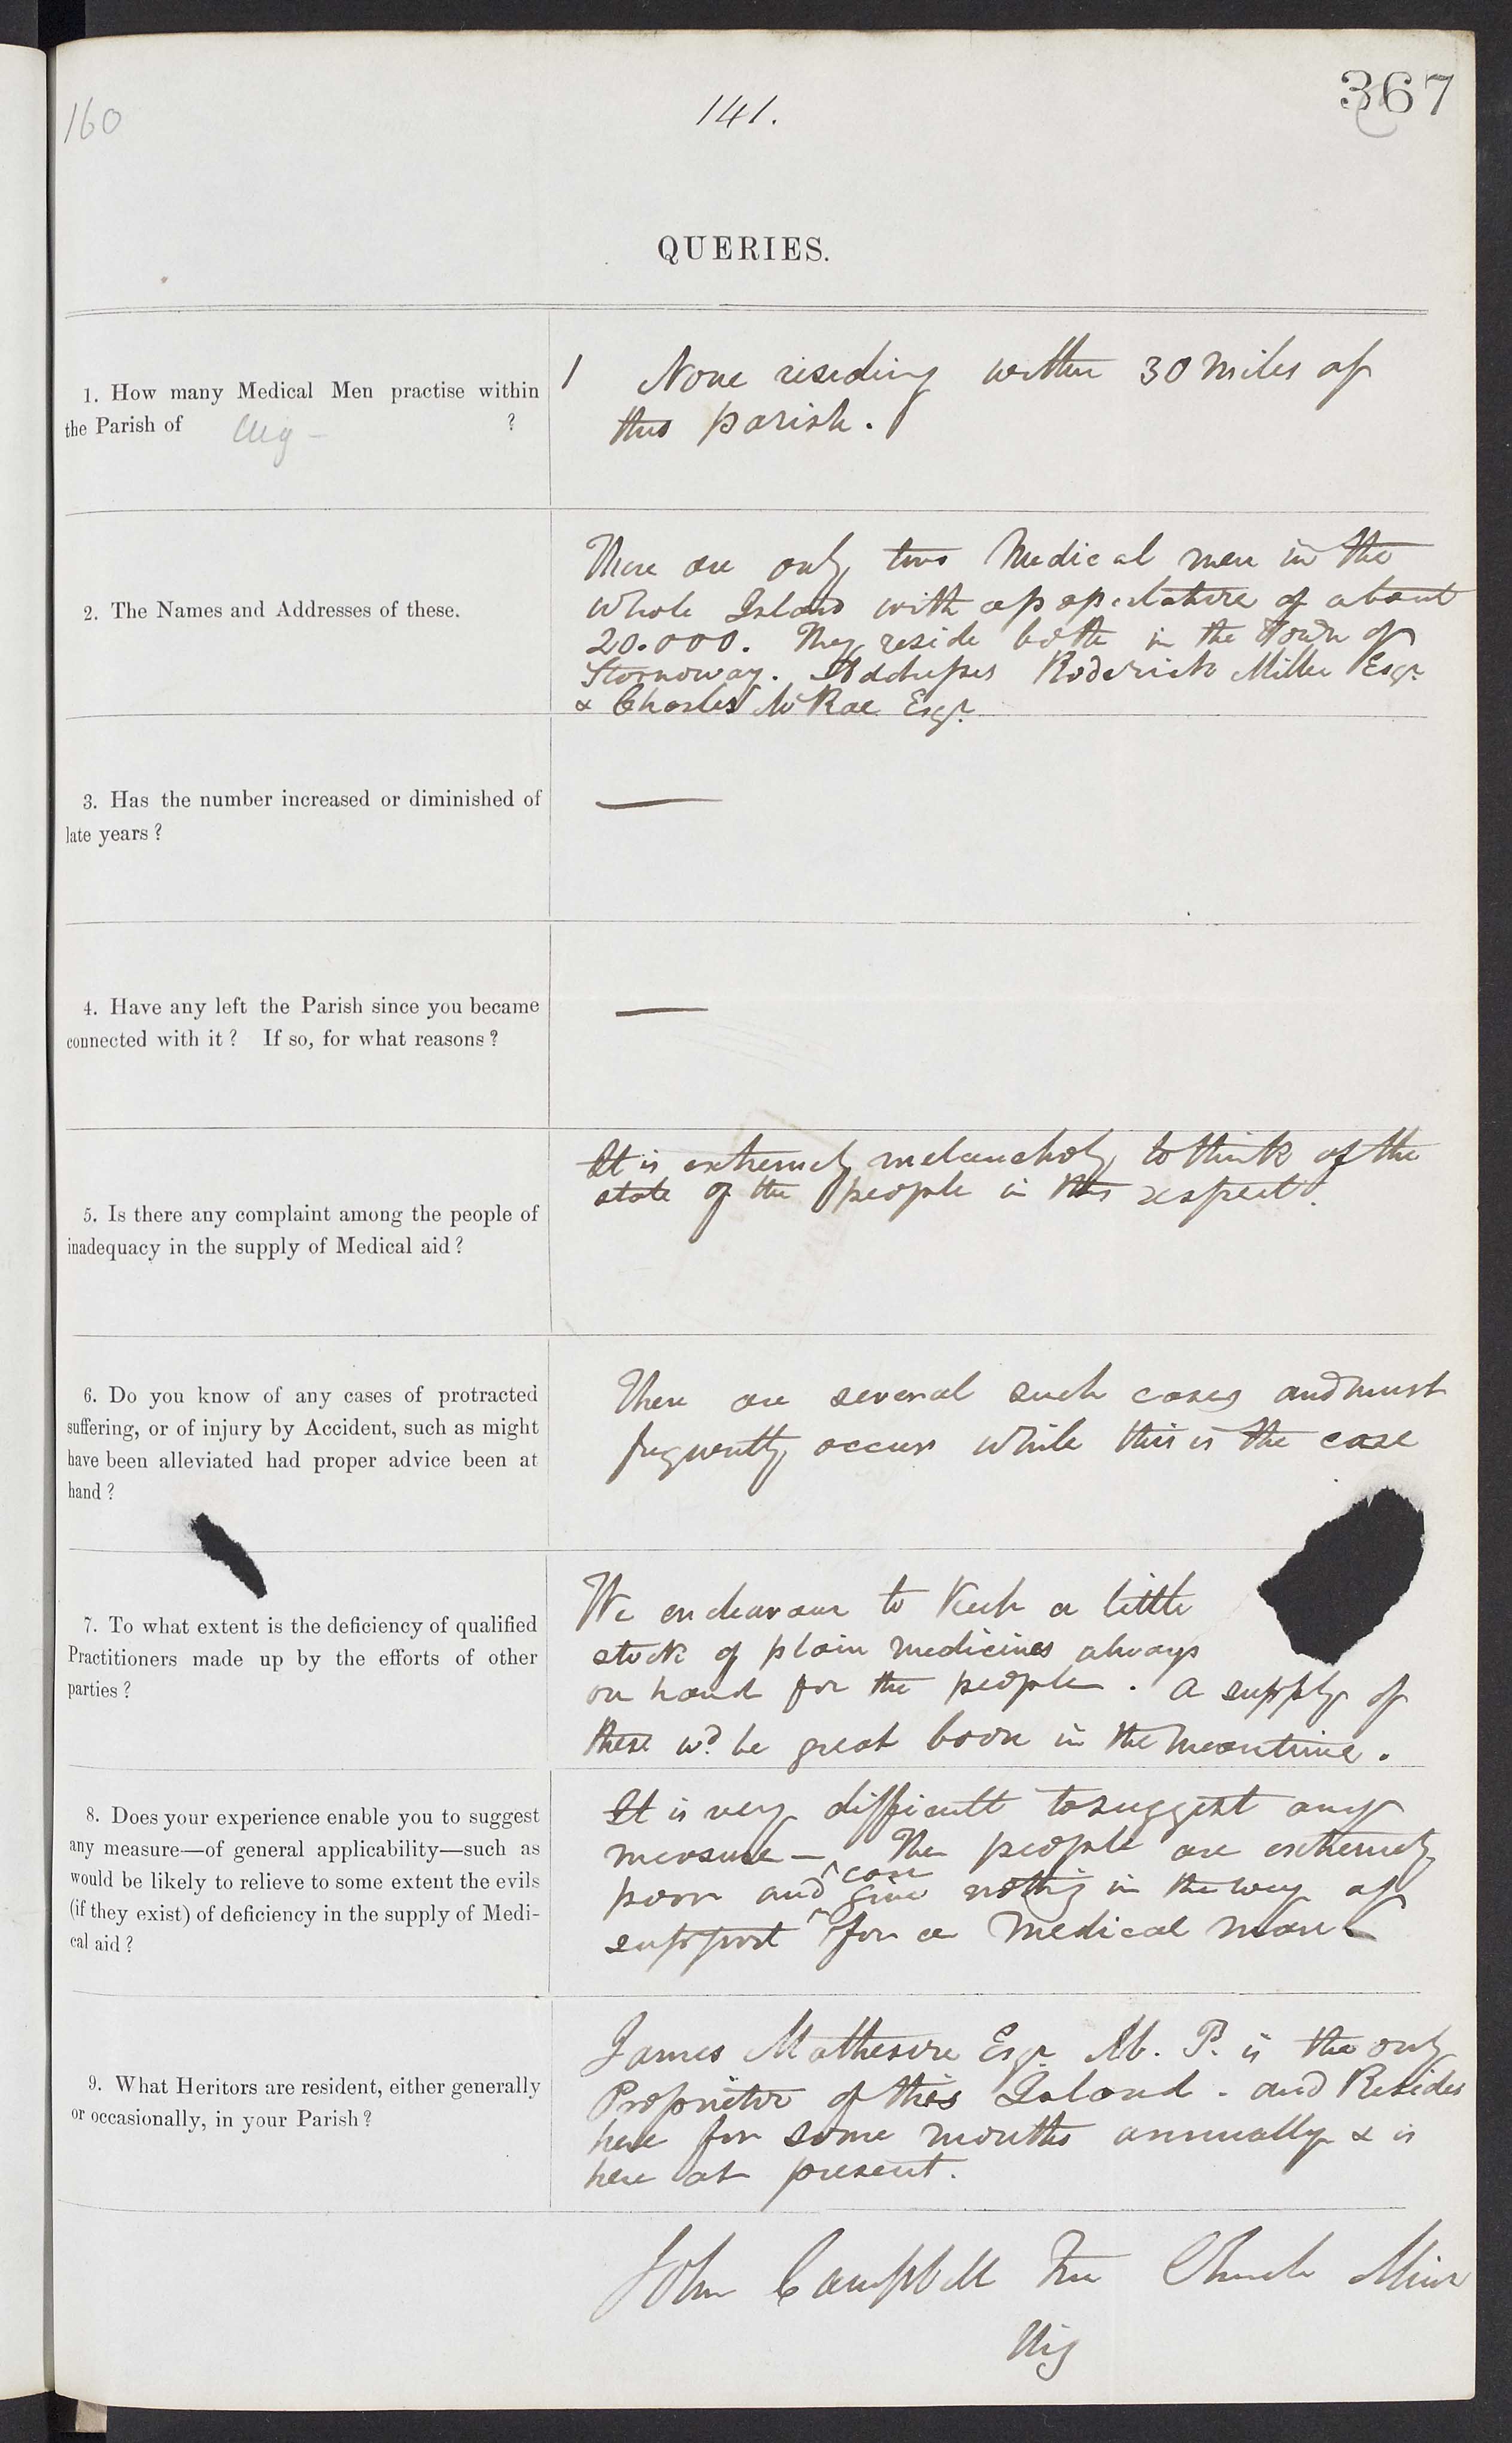 160
141.
367
QUERIES.
1. How many Medical Men practise within
the Parish of Uig — ?
1 None residing within 30 miles of
this parish.
2. The Names and Addresses of these.
There are only two Medical men in the
whole Island with a population of about
20.000. They reside both in the Town of
Stornoway. Addresses Roderick Miller Esqr.
& Charles McRae Esqr.
3. Has the number increased or diminished of
late years?
—
4. Have any left the Parish since you became
connected with it? If so, for what reasons?
—
5. Is there any complaint among the people of
inadequacy in the supply of Medical aid?
It is extremely melancholy to think of the
state of the people in this respect.
6. Do you know of any cases of protracted
suffering, or of injury by Accident, such as might
have been alleviated had proper advice been at
hand?
There are several such cases and must
frequently occur while this is the case
7. To what extent is the deficiency of qualified
Practitioners made up by the efforts of other
parties?
We endeavour to keep a little
stock of plain medicines always
on hand for the people. A supply of
these wd. be great boon in the meantime.
8. Does your experience enable you to suggest
any measure—of general applicability—such as
would be likely to relieve to some extent the evils
(if they exist) of deficiency in the supply of Medi-
cal aid?
It is very difficult to suggest any
measure — The people are extremely
poor and can give nothing in the way of
support for a Medical man
9. What Heritors are resident, either generally
or occasionally, in your Parish?
James Matheson Esqr. M. P. is the only
Proprietor of this Island - and Resides
here for some months annually & is
here at present.
John Campbell Free Church Minr
Uig